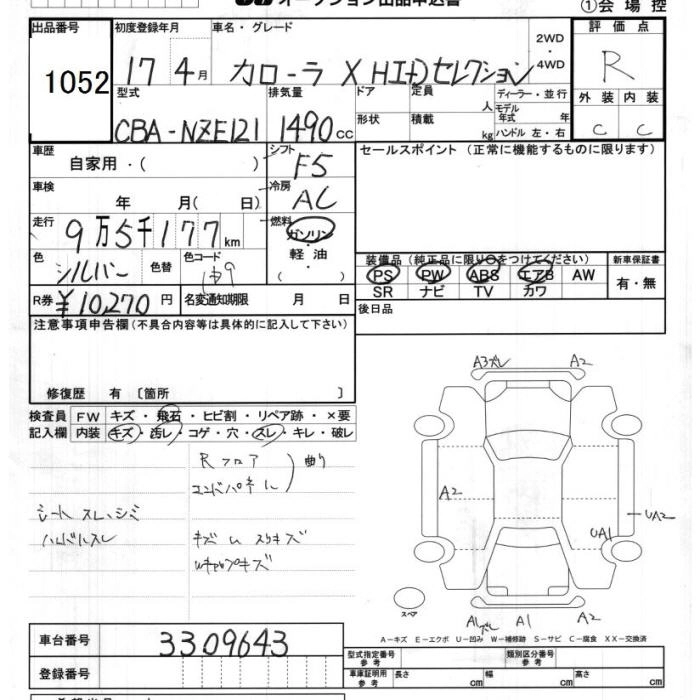 オークション出品申込書
①会場控
出品番号 初度登録年月 車名・グレード 評価点
1052 17年 4月 カローラ X HID セレクション 2WD・4WD R
型式 排気量 ドア 定員 ディーラー・並行 外装 内装
CBA-NZE121 1490cc 形状 積載 人 kg モデル年式 年 ハンドル 左・右 C C
車歴 シフト セールスポイント(正常に機能するものに限ります)
自家用・( ) F5
車検 冷房
年 月( 日) AC
走行 燃料
9万5千177km ガソリン・軽油・( )
色 色替 色コード 装備品(純正品に限り○をつけてください) 新車保証書
シルバー PS PW ABS エアB AW 有・無
SR ナビ TV カワ
R券 ¥10,270円 名変通知期限 月 日 後日品
注意事項申告欄(不具合内容等は具体的に記入して下さい)
修復歴 有 〔箇所 〕
検査員 FW キズ・飛石・ヒビ割・リペア跡・×要
記入欄 内装 キズ・汚レ・コゲ・穴・スレ・キレ・破レ
Rフロア
エンドパネル 曲り
シート スレ、シミ
ハンドルスレ キズ ム スリキズ
キズ
A3ズレ A2
A2
UA2
UA1
スペア
A1ズレ A1 A2
A-キズ E-エクボ U-凹み W-補修跡 S-サビ C-腐食 XX-交換済
車台番号 3309643
型式指定番号 参考 類別区分番号 参考
登録番号 車庫証明用 参考 長さ cm 幅 cm 高さ cm